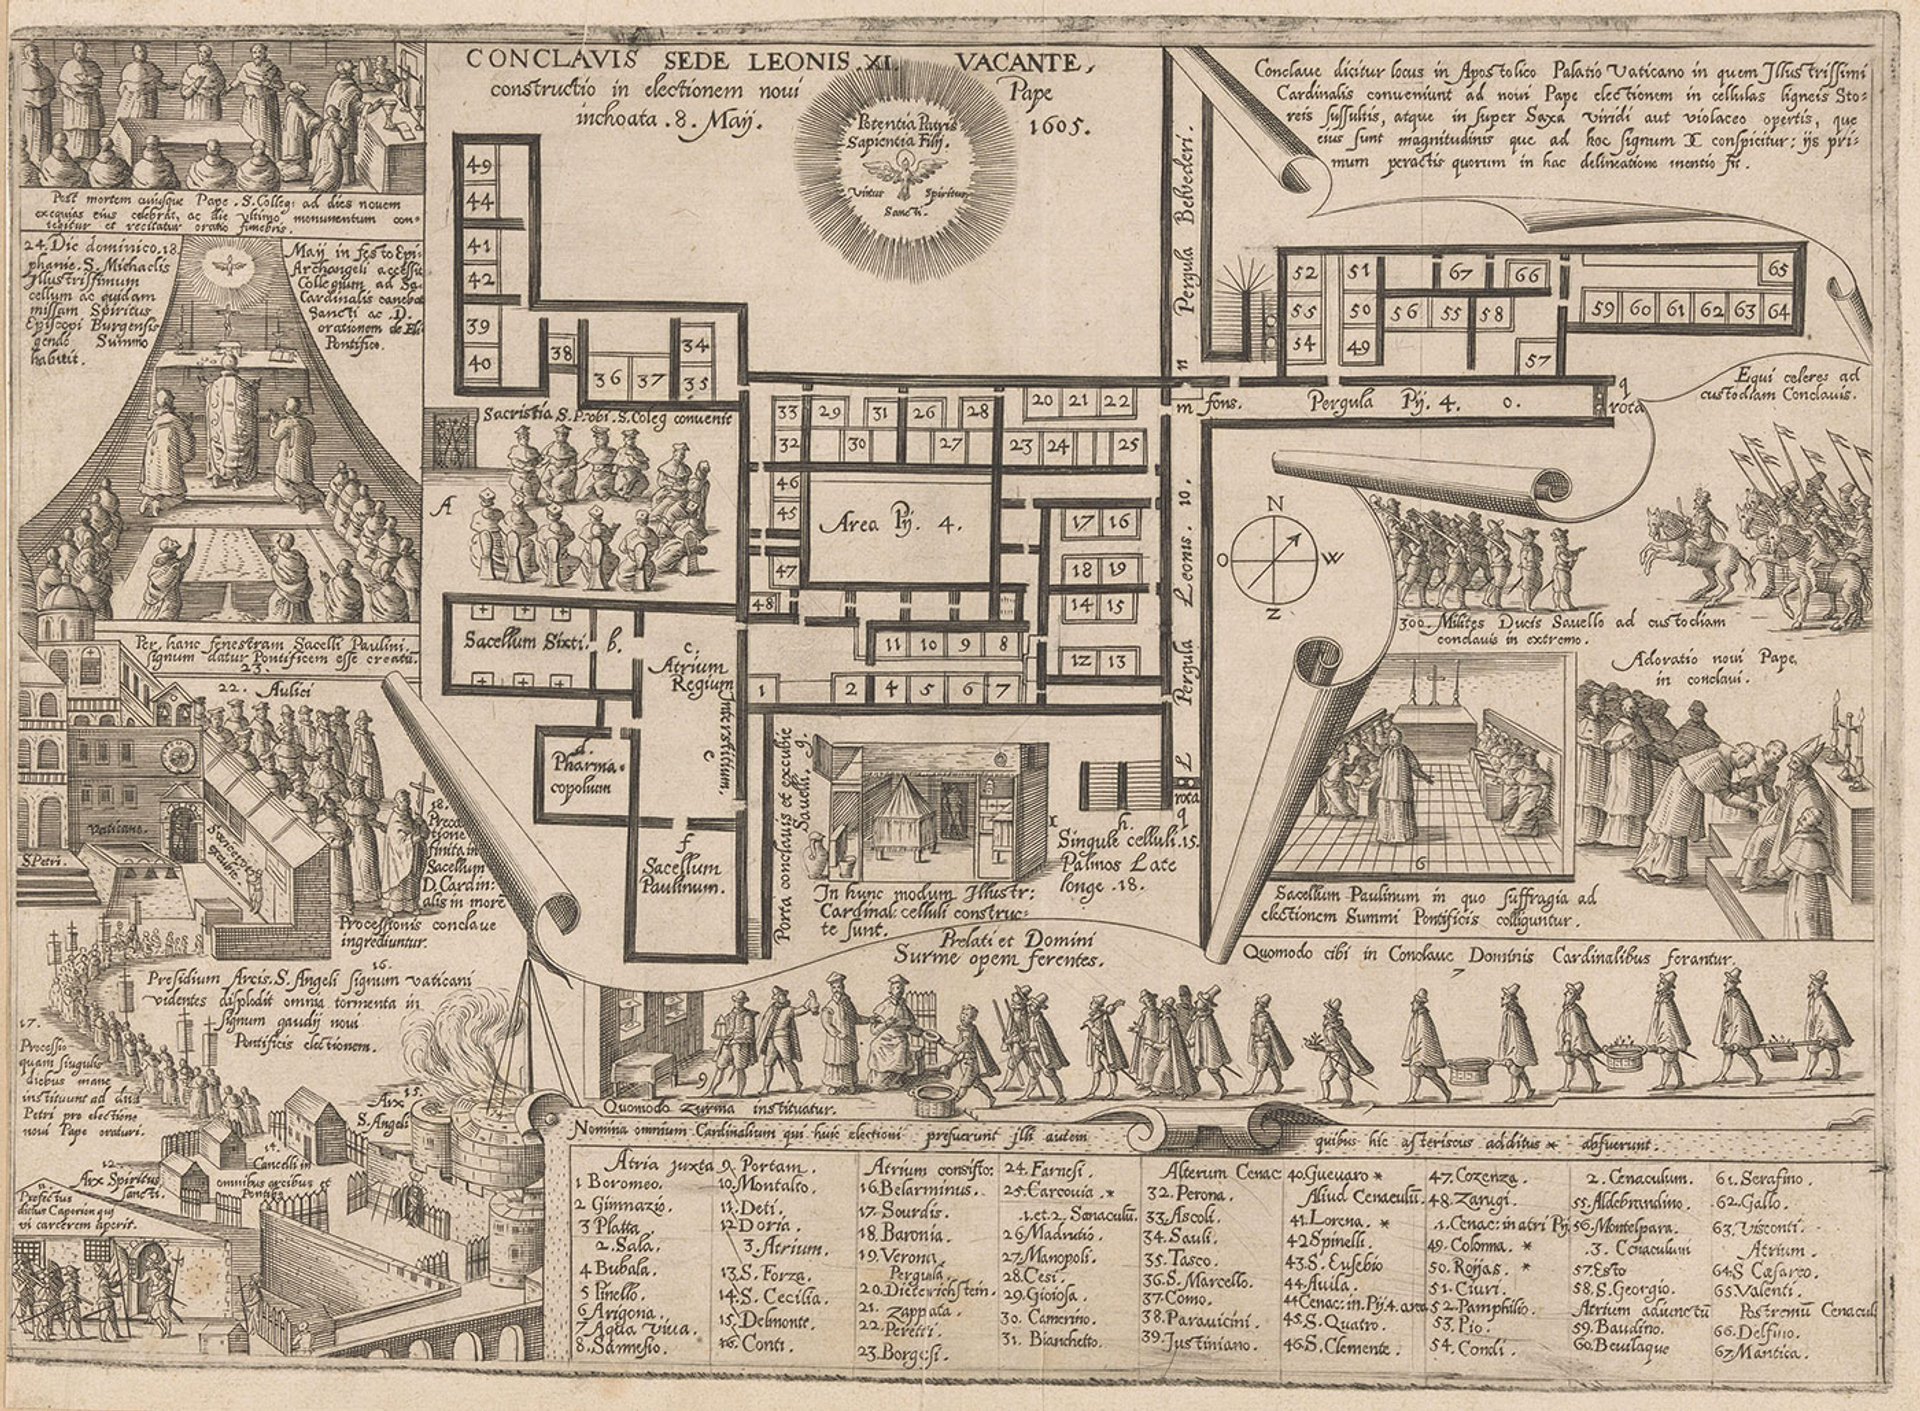 CONCLAVIS SEDE LEONIS.XI. VACANTE,
constructio in electionem noui Pape
inchoata .8. Maij. 1605.
Potentia Patris
Sapientia Filij.
Virtus Spiritus
Sancti.
Conclaue dicitur locus in Apostolico Palatio Vaticano in quem Jllustrissimi
Cardinalis conueniunt ad noui Pape electionem in cellulas ligneis Sto=
reis suffultis, atque in super Saxa viridi aut violaceo opertis, que
eius sunt magnitudinis que ad hoc signum conspicitur; ijs pri=
mum peractis quorum in hac delineatione mentio fit.
Post mortem cuiusque Pape. S. Colleg: ad dies nouem
exequias eius celebrat, ac die vltimo monumentum con=
tegitur et recitatur oratio funebris.
24. Die dominico .18. Maij in festo Epi-
phanie. S. Michaelis Archangeli accessit
Jllustrissimum Collegium ad Sa-
cellum ac quidam Cardinalis canebat
missam Spiritus Sancti ac D.
Episcopi Burgensis orationem de Eli
gendo Summo Pontifice.
habuit.
Per hanc fenestram Sacelli Paulini.
signum datur Pontificem esse creatū.
23.
22. Aulici
Vaticane.
S. Petri.
18.
Preca
tione
finita in
Sacellum
D. Cardin:
alis in more
Processionis conclaue
ingrediuntur.
16.
Presidium Arcis. S. Angeli signum vaticani
videntes displodit omnia tormenta in
signum gaudij noui
Pontificis electionem.
17.
Processio
quam singulis
diebus mane
instituunt ad diui
Petri pro electione
noui Pape oraturi.
Arx 15.
S. Angeli
14.
Cancelli in
omnibus arcibus et
Pontibus
12.
Arx Spiritus
sancti.
Prefectus
dictus Caperion qui
vi carcerem aperit.
49
44
41
42
39
40
38
36 37
34
35
Sacristia S. Probi. S. Coleg conuenit
A
33 29 31 26 28
32 30 27
20 21 22
23 24 25
46
45
47
48
Area Pij. 4.
17 16
18 19
14 15
12 13
11 10 9 8
1 2 4 5 6 7
Sacellum Sixti. b.
c.
Atrium
Regium
Intersticium.
e
d.
Pharma-
copolium
f
Sacellum
Paulinum.
Porta conclauis et excubie
Sauelli. g.
In hunc modum Jllustr:
Cardinal: celluli construc=
te sunt.
h.
Singule celluli .15.
Palmos Late
longe .18.
Pergula Belvederi.
n
m fons.
Pergula Leonis. 10.
L
rota
q
Pergula Pij. 4. o.
q
rota
52 51 67 66 65
55 50 56 55 58
54 49 57
59 60 61 62 63 64
N
O W
Z
Equi celeres ad
custodiam Conclauis.
300. Milites Ducis Sauello ad custodiam
conclauis in extremo.
Adoratio noui Pape,
in conclaui.
6
Sacellum Paulinum in quo suffragia ad
electionem Summi Pontificis colliguntur.
Prelati et Domini
Surme opem ferentes.
Quomodo cibi in Conclaue Dominis Cardinalibus ferantur.
7
9
Quomodo zurma instituatur.
Nomina omnium Cardinalium qui huic electioni prefuerunt illi autem quibus hic asteriscus additus * abfuerunt.
Atria juxta
1 Boromeo.
2 Gimnazio.
3 Platta
2. Sala.
4 Bubala.
5 Pinello.
6 Arigona.
7 Aqua viua.
8. Sannesio.
9. Portam.
10. Montalto.
11. Deti.
12 Doria.
3. Atrium.
13. S. Forza.
14. S. Cecilia.
15. Delmonte.
16. Conti.
Atrium consisto:
16. Belarminus.
17. Sourdis.
18. Baronia.
19. Verona.
Pergula.
20. Dieterichstein.
21. Zappata.
22. Peretti.
23. Borgesi.
24. Farnesi.
25. Carcouia. *
.1. et .2. Sanaculū.
26 Madrutio.
27. Manopoli.
28. Cesi.
29. Gioiosa.
30. Camerino.
31. Bianchetto.
Alterum Cenac
32. Perona.
33. Ascoli.
34. Sauli.
35. Tasco.
36. S. Marcello.
37. Como.
38. Parauicini.
39. Justiniano.
40. Gueuaro *
Aliud Cenaculū.
41. Lorena. *
42 Spinelli.
43. S. Eusebio
44. Auila.
44 Cenac: in Pij. 4. area
45. S. Quatro.
46. S. Clemente.
47. Cozenza.
48. Zarugi.
.1. Cenac: in atri Pij
49. Colonna. *
50. Roijas. *
51. Ciuri.
52. Pamphilio.
53. Pio.
54. Condi.
2. Cenaculum.
55. Aldebrandino.
56. Montelpara.
.3. Cenaculum
57. Esto
58. S. Georgio.
Atrium adiunctū
59. Baudino.
60. Beuilaque
61. Serafino.
62. Gallo.
63. Visconti.
Atrium.
64. S Cæsareo.
65. Valenti.
Postremū Cenaculi
66. Delfino.
67. Mantica.